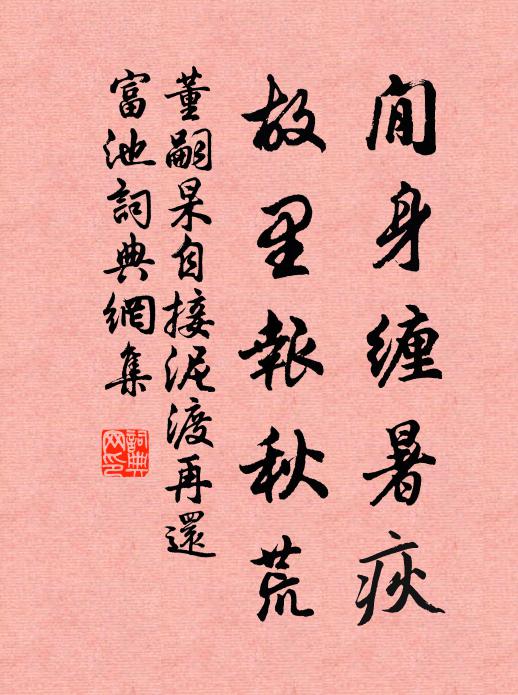 閒身纏暑疢
故里報秋荒
董嗣杲自接泥渡再還
富池詞典網集
詞典網印